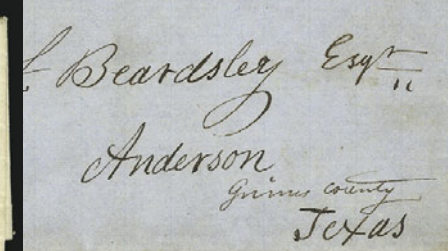 Beardsley Esqr
Anderson
Grimes county
Texas